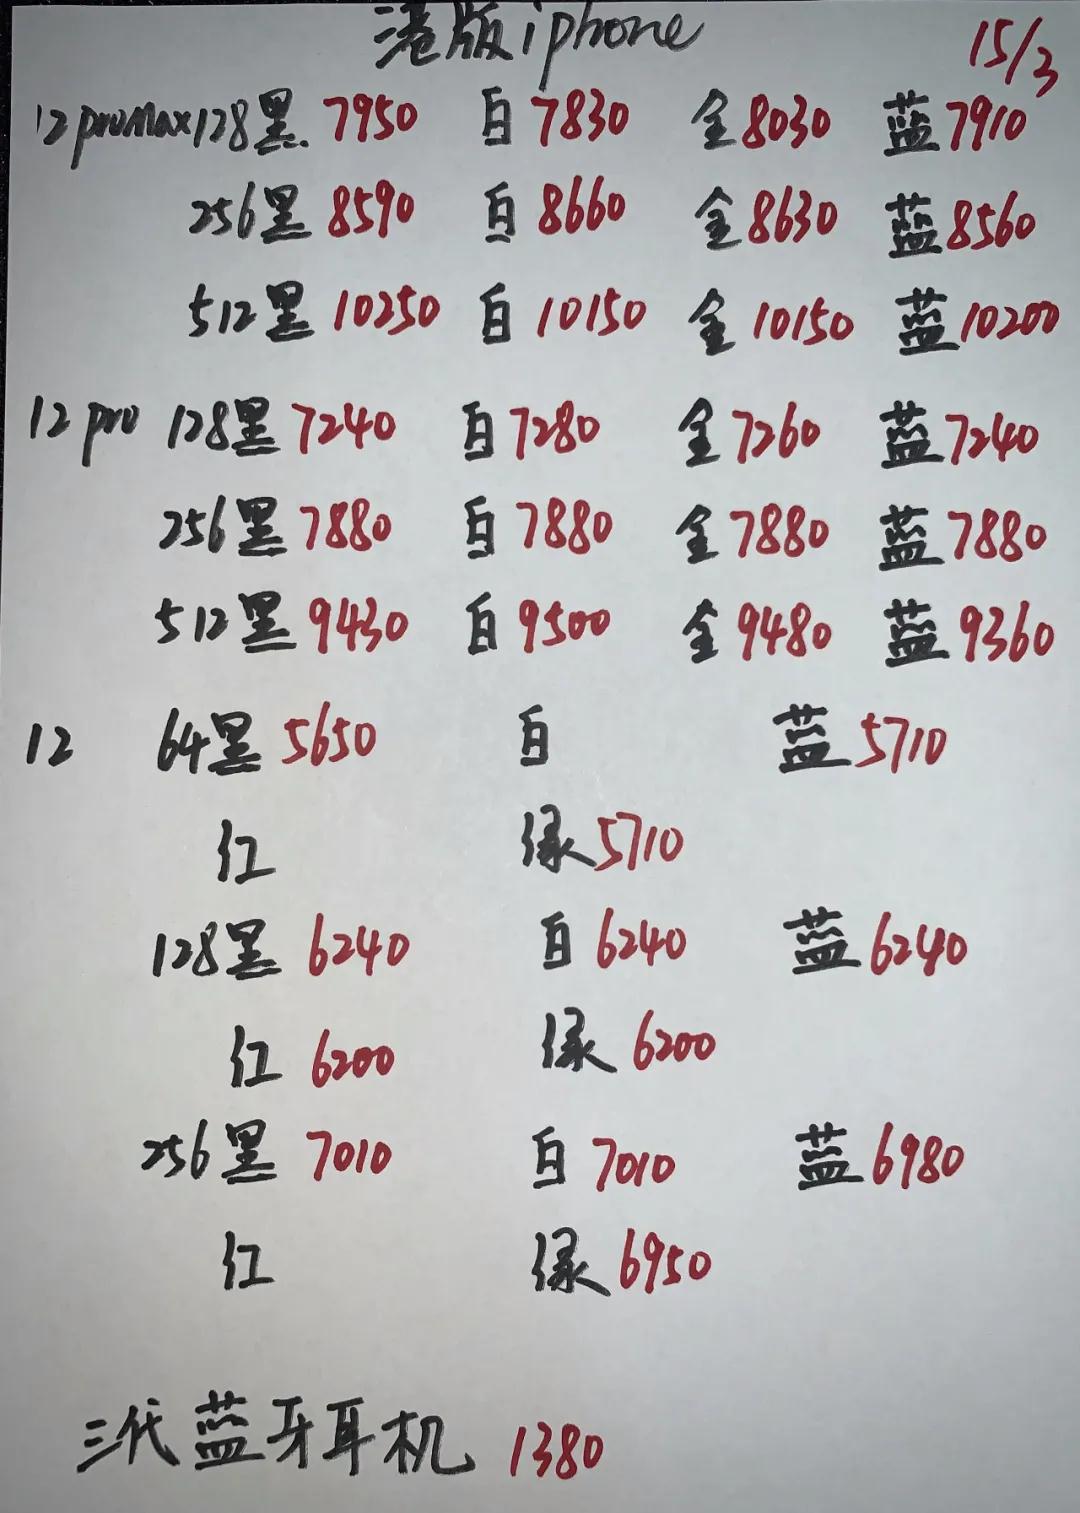 港版iphone 15/3
12promax128黑 7950 白 7830 金 8030 蓝 7910
256黑 8590 白 8660 金 8630 蓝 8560
512黑 10250 白 10150 金 10150 蓝 10200
12pro 128黑 7240 白 7280 金 7260 蓝 7240
256黑 7880 白 7880 金 7880 蓝 7880
512黑 9430 白 9500 金 9480 蓝 9360
12 64黑 5650 白 蓝 5710
红 绿 5710
128黑 6240 白 6240 蓝 6240
红 6200 绿 6200
256黑 7010 白 7010 蓝 6980
红 绿 6950
三代蓝牙耳机 1380